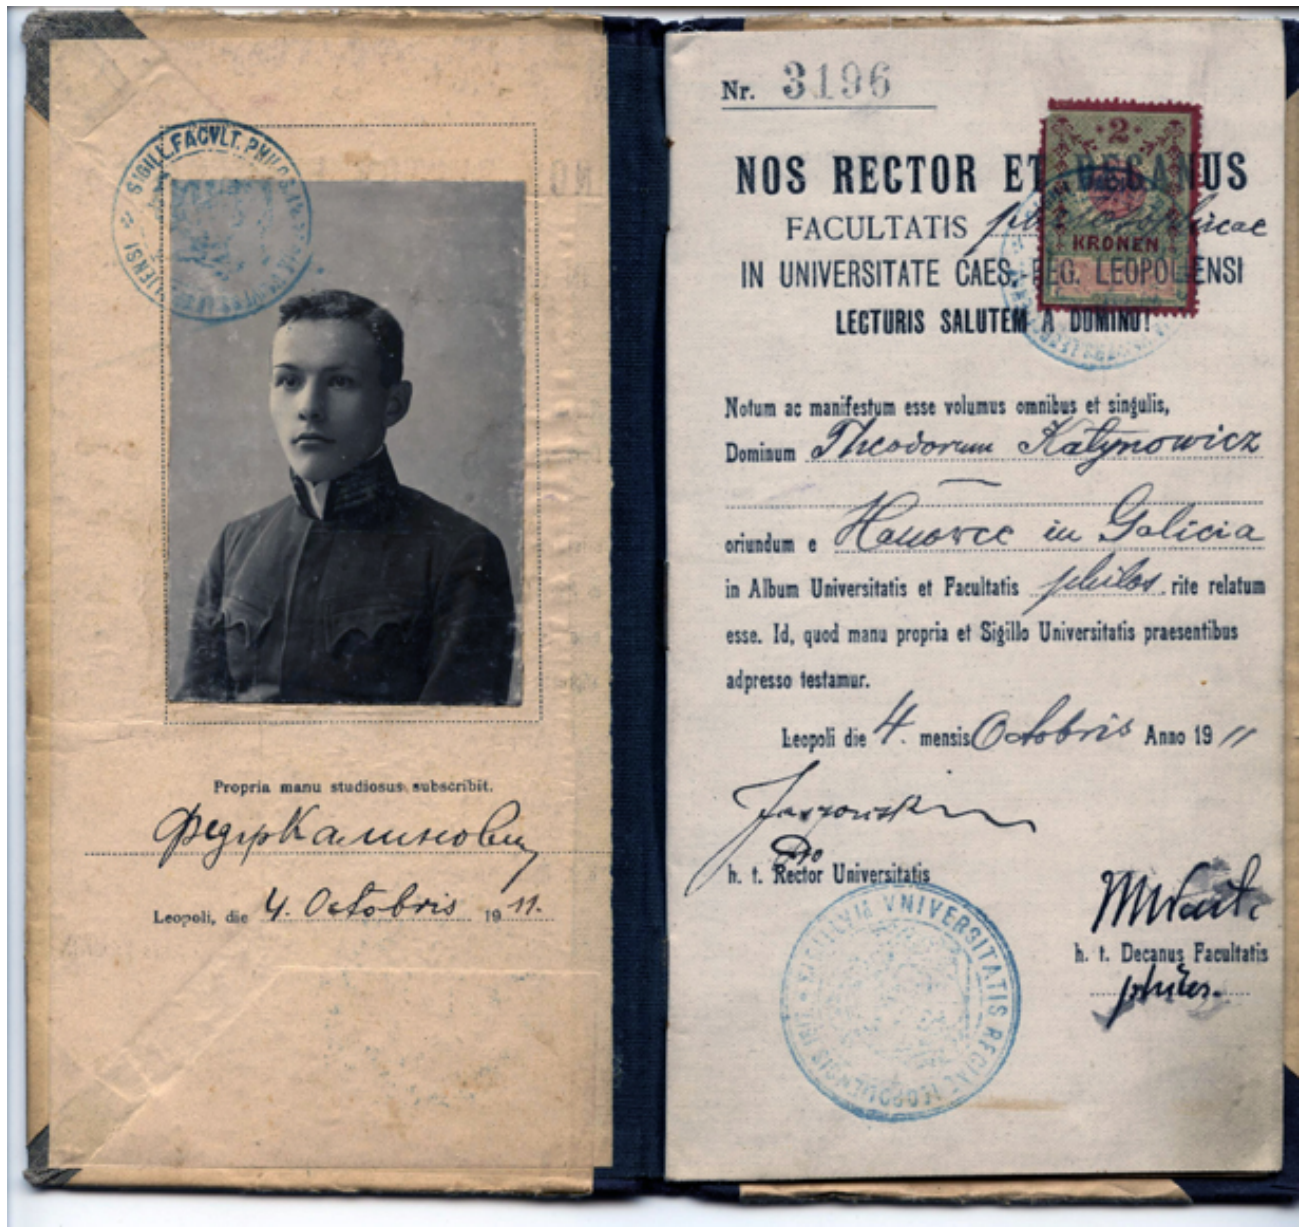 SIGILL. FACVLT. PHILOS
Propria manu studiosus subscribit.
Федір Калинович
Leopoli, die 4. Octobris 1911.
Nr. 3196
2
KRONEN
NOS RECTOR ET DECANUS
FACULTATIS philosophicae
IN UNIVERSITATE CAES. REG. LEOPOLIENSI
LECTURIS SALUTEM A DOMINO!
Notum ac manifestum esse volumus omnibus et singulis,
Dominum Theodorum Kalynowicz
oriundum e Hanowce in Galicia
in Album Universitatis et Facultatis philos. rite relatum
esse. Id, quod manu propria et Sigillo Universitatis praesentibus
adpresso testamur.
Leopoli die 4. mensis Octobris Anno 1911
Pro
h. t. Rector Universitatis
h. t. Decanus Facultatis
philos.
SIGILLVM VNIVERSITATIS REGIAE LEOPOLIENSIS